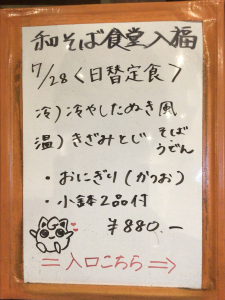 和そば食堂入福
7/28〈日替定食〉
冷）冷やしたぬき風
温）きざみとじ そば うどん
・おにぎり（かつお）
・小鉢2品付
¥880.—
＝入口こちら⇒